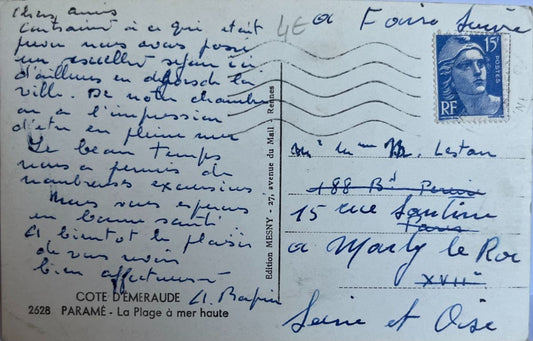 Chers amis
Contrairement à ce qui était
prévu nous avons passé
un excellent séjour ici
d'ailleurs en dehors de la
ville. De notre chambre
on a l'impression
d'être en pleine mer
Le beau temps
nous a permis de
nombreuses excursions
Nous vous espérons
en bonne santé
A bientôt le plaisir
de vous revoir
bien affectueusement
COTE D'EMERAUDE
2628 PARAMÉ - La Plage à mer haute
Edition MESNY - 27, avenue du Mail - Rennes
4E
à Faire Suivre
15F
POSTES
RF
Mr Mme
188 Bd Pereire
15 rue
Paris
à Marly le Roi
XVIIe
Seine et Oise